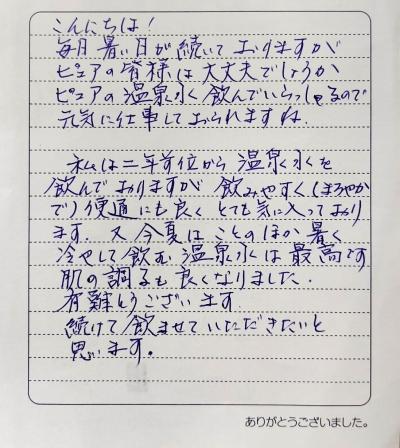 こんにちは!
毎日暑い日が続いておりますが
ピュアの皆様は大丈夫でしょうか
ピュアの温泉水飲んでいらっしゃるので
元気に仕事しておられますね.
私は二年前位から温泉水を
飲んでおりますが飲みやすく(まろやか
で)便通にも良くとても気に入っており
ます. 又今夏はことのほか暑く
冷やして飲む温泉水は最高です
肌の調子も良くなりました.
有難とうございます
続けて飲ませていただきたいと
思います。
ありがとうございました。